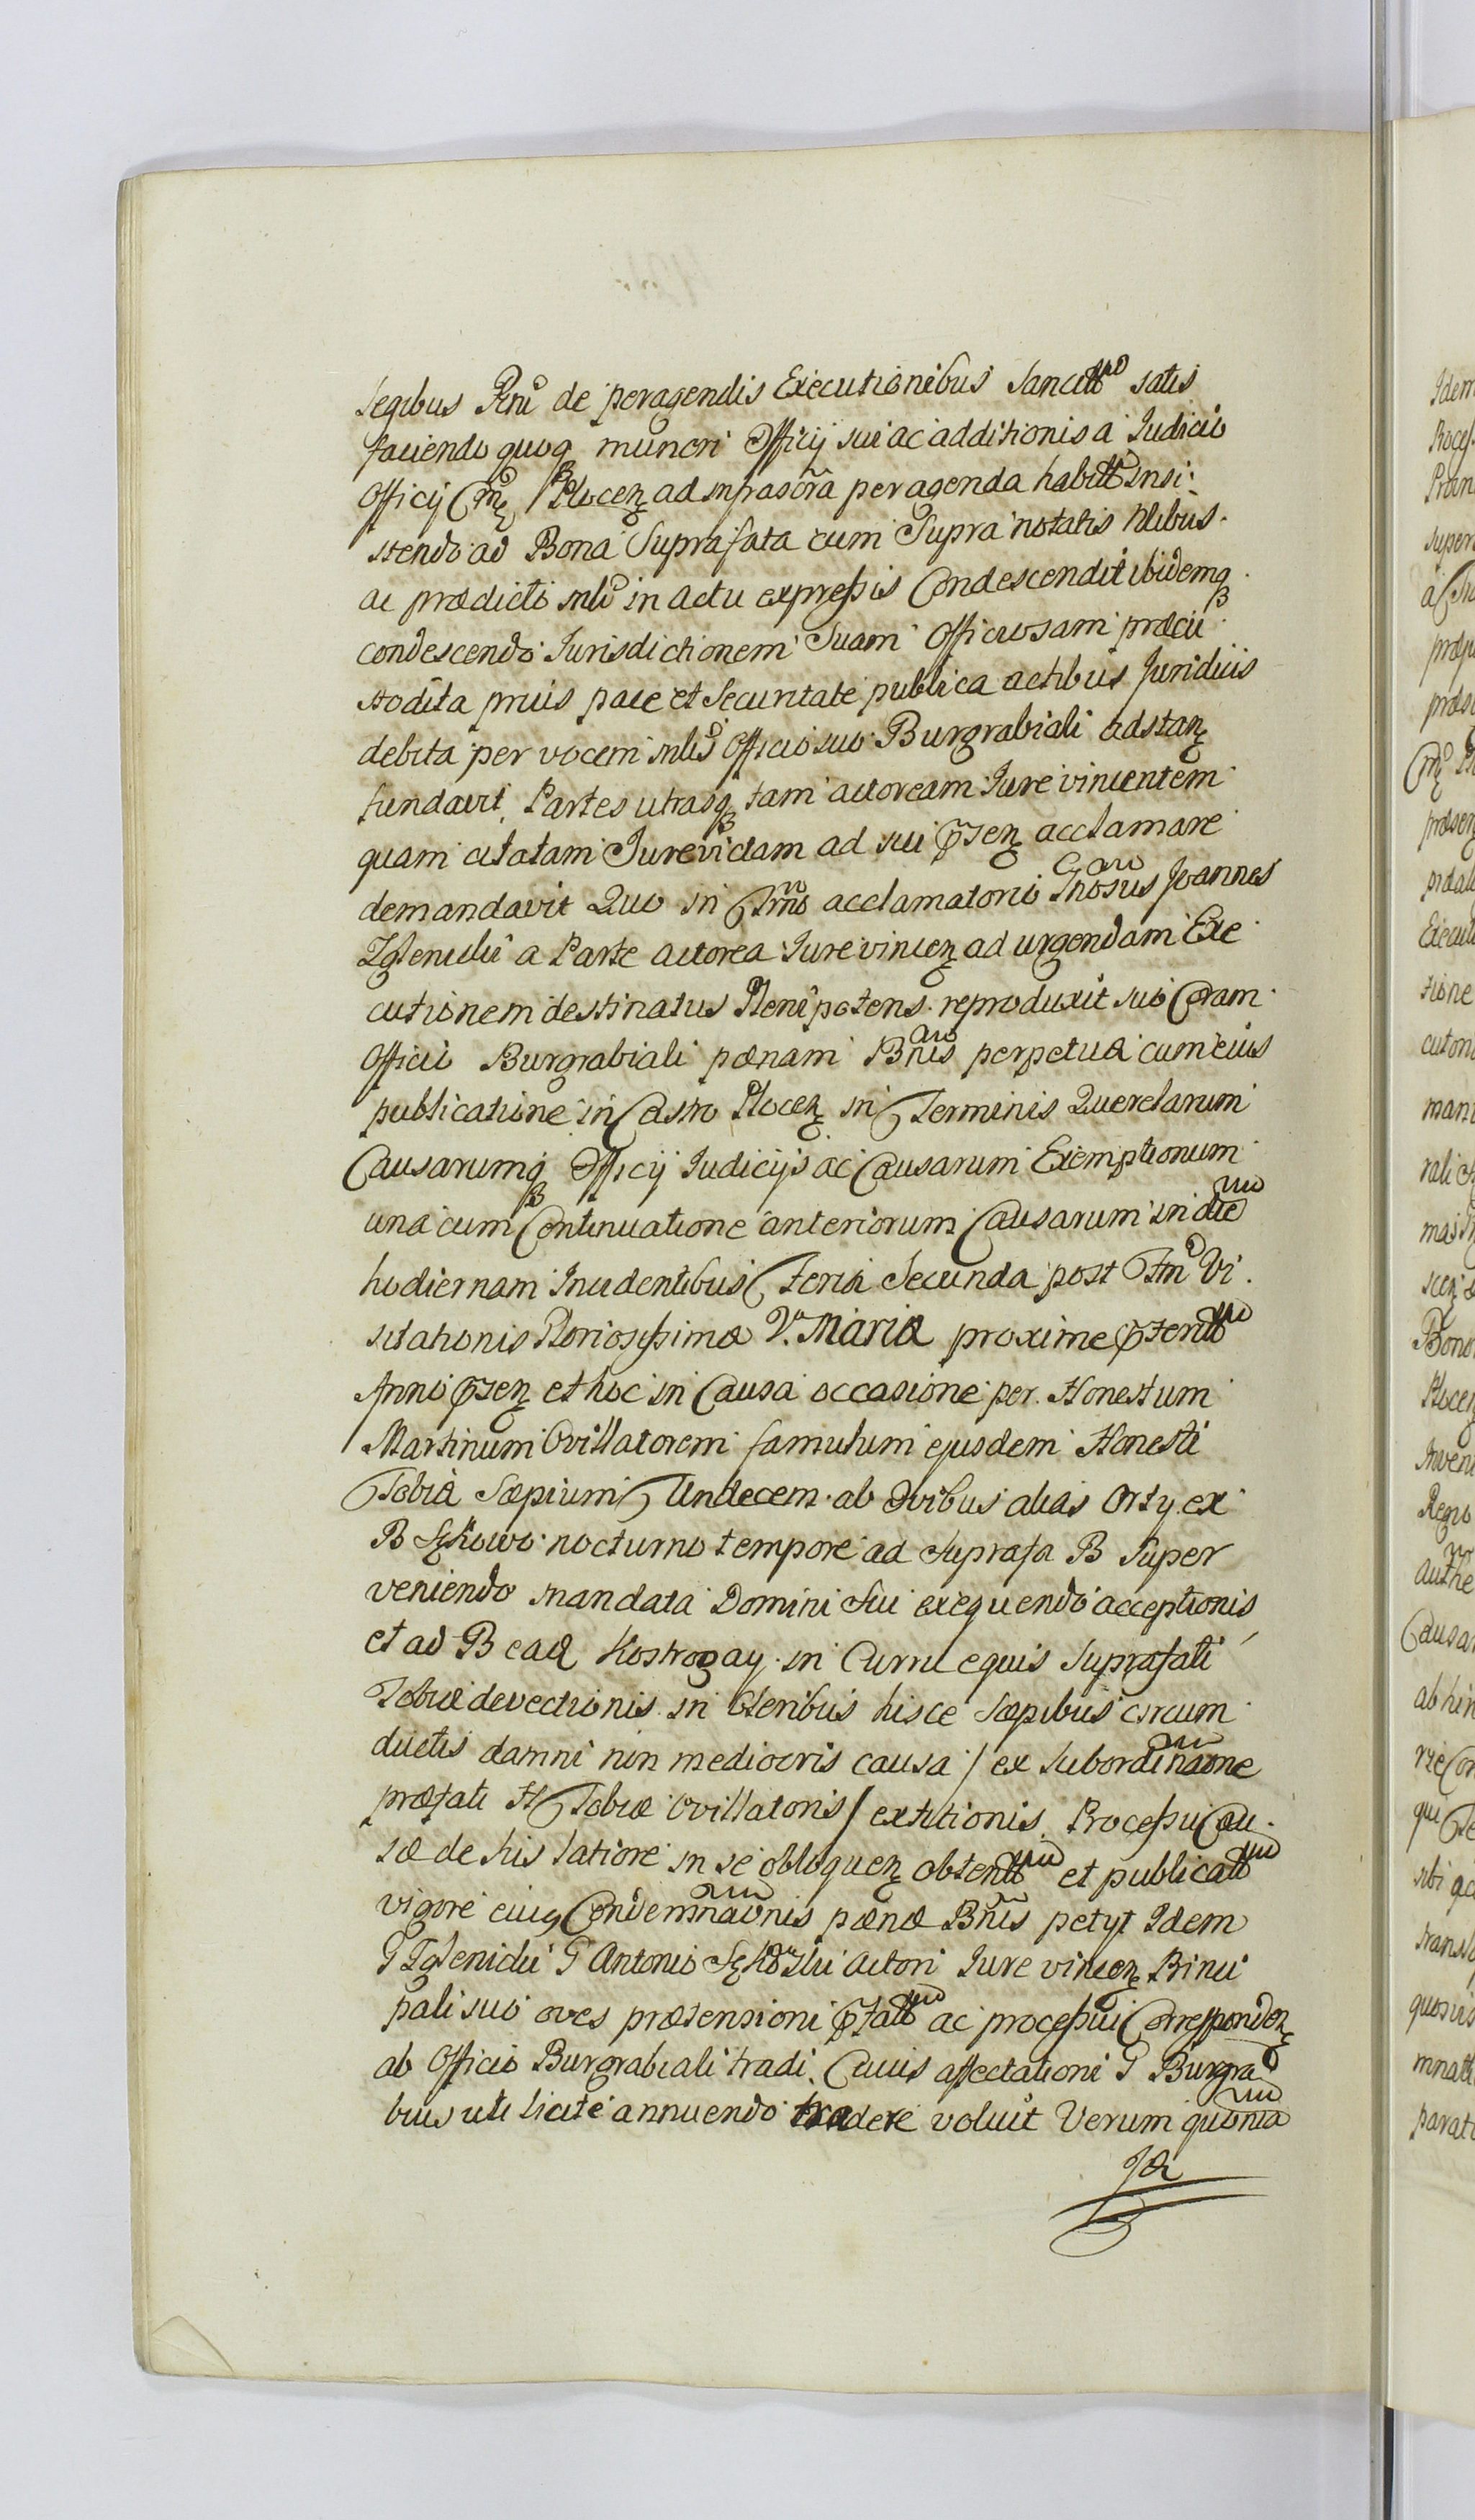 legibus Rni de peragendis Executionibus Sancitt satis
faciendo quoq muneri Officij sui ac additionis a Iudicio
Officij Plocen ad infrascra peragenda habitt insi
stendo ad Bona Suprafata cum Supra notatis Nlibus
ac prædicti mli in actu expressis Condescendit ibidemq
condescendo Jurisdictionem Suam Officiosam præcu
stodita prius pace et Securitate publica actibus Juridicis
debita per vocem mlis Officio suo Burgrabiali adstan
fundavit, Partes utrasq tam actoream Jure vincentem
quam citatam Jurevictam ad sui psen acclamare
demandavit Quo in Trno acclamatorio Gnosus Joannes
Zglenicki a Parte actorea Jure vincen ad urgendam Exe
cutionem destinatus Plenipotens reproduxit suo Coram
Officio Burgrabiali pænam Bnis perpetuæ cum eius
publicatione in Castro Plocen in Terminis Querelarum
Causarumq Officij Judicijs ac Causarum Exemptionum
una cum Continuatione anteriorum Causarum in die
hodiernam Incidentibus Feria Secunda post Ftm Vi
sitationis Gloriosissimæ V. Mariæ proxime pteritt
Anni psen et hoc in Causa occasione per Honestum
Martinum Ovillatorem famulum ejusdem Honesti
Tobiæ Sæpium Undecem ab Ovibus alias Orty ex
B Sękowo nocturno tempore ad Suprafa B Super
veniendo mandata Domini Sui exequendo acceptionis
et ad B ead Kostrogay in Curru equis Suprafati
Tobiæ devectionis in steribus hisce Sæpibus circum
ductis damni non mediocris causa / ex Subordinaone
præfati H Tobiæ Ovillatoris / extitionis Processu Cau
sæ de his latiore in se obloquen obtentt et publicatt
vigore eius Condemnaonis pænæ Bnis petyt Idem
G Zglenicki G Antonio Sękowski Actori Jure vincen Princi
pali suo oves prætensioni pfatt ac processui Corresponden
ab Officio Burgrabiali tradi. Cuius affectationi G Burgra
bius uti licitè annuendo tradere voluit Verum quonia